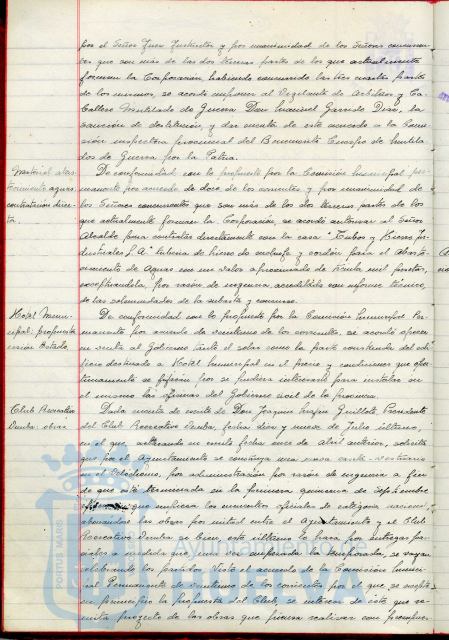 por el Señor Juez Instructor y por unanimidad de los Señores concurren-
tes que son más de las dos terceras partes de los que actualmente
forman la Corporación, habiendo concurrido las tres cuartas partes
de los mismos, se acordó imponer al Vigilante de Arbitrios y Ca-
ballero Mutilado de Guerra Don Manuel Garrido Diaz, la
sanción de destitución, y dar cuenta de este acuerdo a la Comi-
sión inspectora provincial del Benemérito Cuerpo de Mutila-
dos de Guerra por la Patria.
Material abas-
tecimiento aguas
contratación direc-
ta.
De conformidad con lo propuesto por la Comisión Municipal per-
manente por acuerdo de doce de los corrientes y por unanimidad de
los Señores concurrentes que son más de las dos terceras partes de los
que actualmente forman la Corporación, se acordó autorizar al Señor
Alcalde para contratar directamente con la casa "Tubos y Hierros In-
dustriales S.A." tubería de hierro de enchufe y cordón para el abaste-
cimiento de Aguas con un valor aproximado de treinta mil pesetas,
exceptuándola, por razón de urgencia, acreditada con informe técnico,
de las solemnidades de la subasta y concurso.
Hotel Muni-
cipal: propuesta
cesión Estado.
De conformidad con lo propuesto por la Comisión Municipal Per-
manente por acuerdo de veintiuno de los corrientes, se acordó ofrecer
en venta al Gobierno tanto el solar como la parte construida del edi-
ficio destinado a Hotel Municipal en el precio y condiciones que opor-
tunamente se fijarán por si pudiera interesarle para instalar en
el mismo las oficinas del Gobierno civil de la provincia.
Club Recreativo
Huelva: obras
Dada cuenta de escrito de Don Joaquin Guillote Presidente
del Club Recreativo Huelva, fecha diez y nueve de Julio último,
en el que, aclarando su escrito fecha once de Abril anterior, solicita
que por el Ayuntamiento se construya una nueva caseta-vestuario
en el Velódromo, por administración por razón de urgencia a fin
de que esté terminada en la primera quincena de Septiembre
que empiezan los encuentros oficiales de categoría nacional
abonándose las obras por mitad entre el Ayuntamiento y el Club
Recreativo Huelva si bien, este último lo hará por entregas par-
ciales a medida que una vez empezada la temporada, se vayan
celebrando los partidos. Visto el acuerdo de la Comisión Munici-
pal Permanente de veintiuno de los corrientes por el que, se acepta
en principio la propuesta del Club, se interesa de éste que re-
mita proyecto de las obras que piensa realizar con presupues-